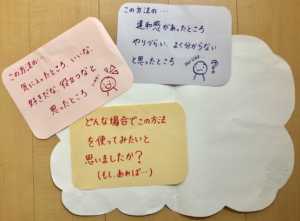 この方法の…
気に入ったところ、いいな、
好きだな、役立つなと
思ったところ
この方法の…
違和感があったところ
やりづらい、よく分からない
と思ったところ
どんな場合でこの方法
を使ってみたいと
思いましたか?
(もし、あれば…)